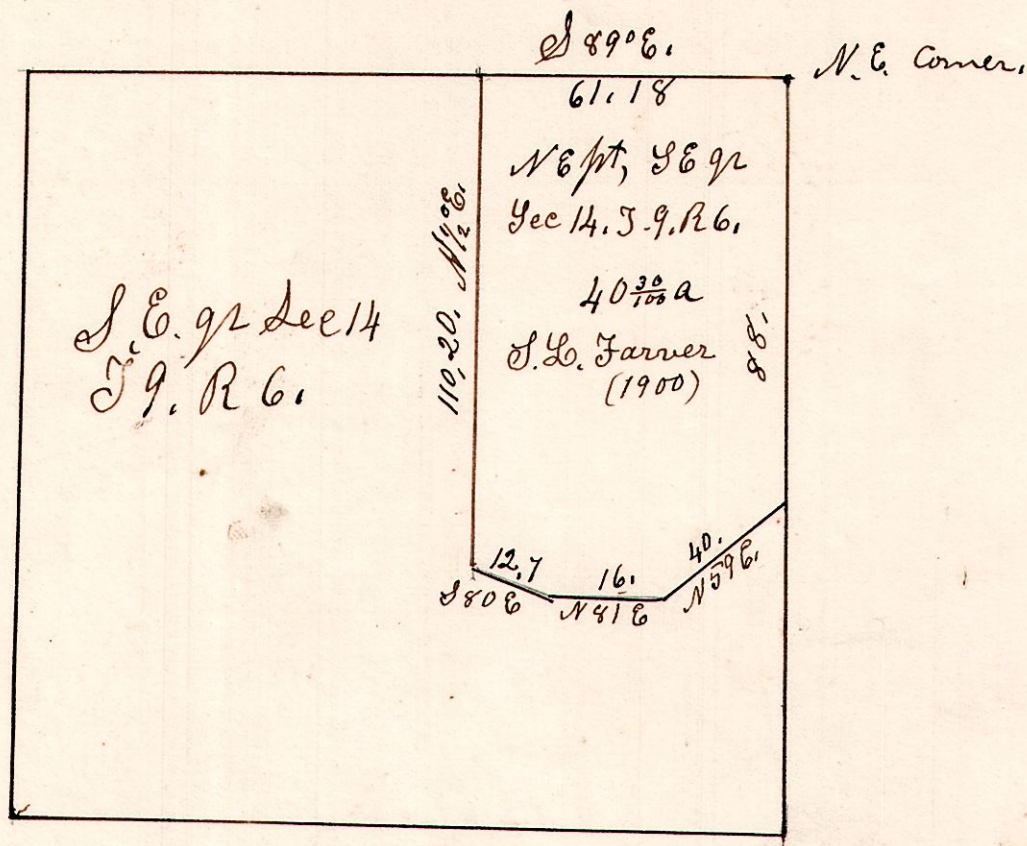 S 89° E.
N. E. Corner.
61.18
N E pt, S E qr
Sec 14. T. 9. R 6.
40 30/100 a
S. L. Farver
(1900)
110,20. N 1/2° E.
88.
S. E. qr Sec 14
T 9. R 6.
12,7
S 80 E
16.
N 81 E
40.
N 59 E.